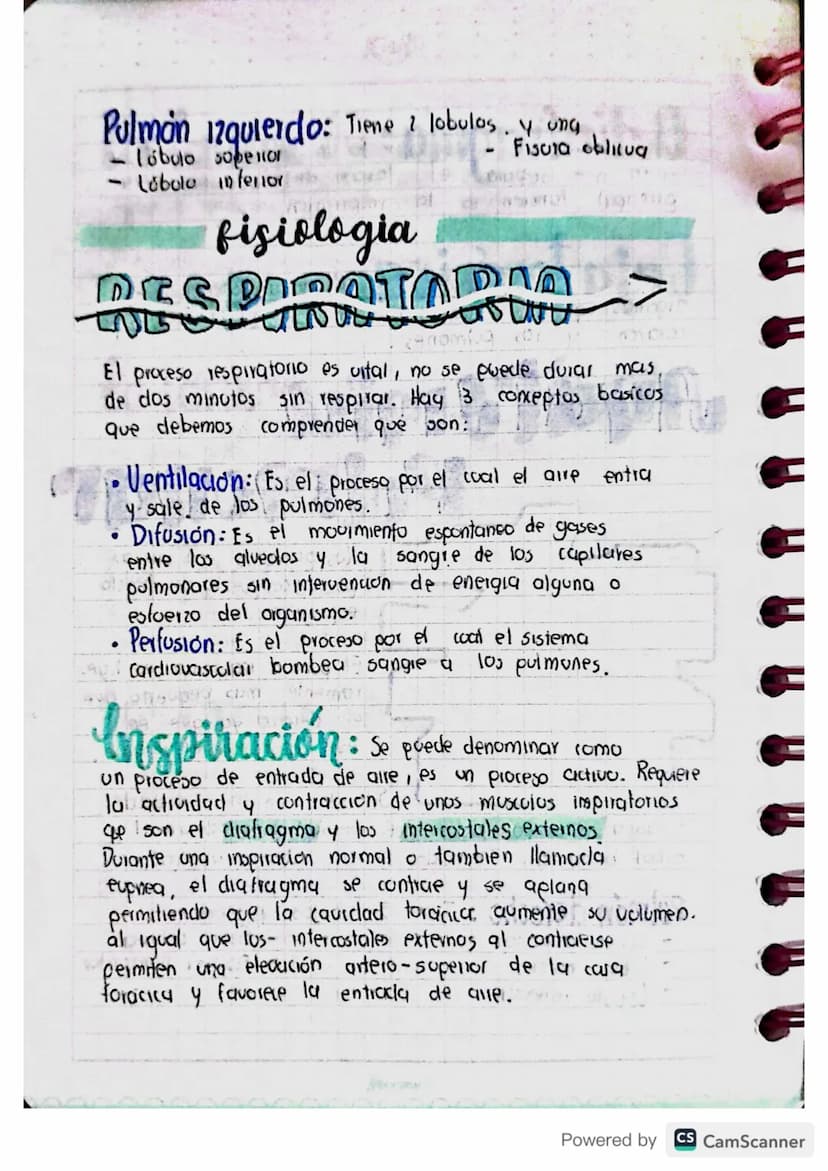 Pulmón izquierdo: Tiene 2 lobulos. y una
- Lóbulo superior - Fisura oblicua
- Lóbulo inferior
fisiologia
RESPIRATORIA
El proceso respiratorio es vital, no se puede durar mas
de dos minutos sin respirar. Hay 3 conceptos basicos
que debemos comprender que son:
• Ventilación: Es el proceso por el cual el aire entra
y sale de los pulmones.
• Difusión: Es el movimiento espontaneo de gases
entre los alveolos y la sangre de los capilares
pulmonares sin intervencion de energia alguna o
esfuerzo del organismo.
• Perfusión: Es el proceso por el cual el sistema
cardiovascular bombea sangre a los pulmones.
Inspiración: Se puede denominar como
un proceso de entrada de aire, es un proceso activo. Requiere
la actividad y contraccion de unos musculos inspiratorios
que son el diafragma y los intercostales externos.
Durante una inspiracion normal o tambien llamada
eupnea, el diafragma se contrae y se aplana
permitiendo que la cavidad toracica aumente su volumen.
al igual que los- intercostales externos al contraerse
permiten una elevación antero-superior de la caja
toracica y favorece la entrada de aire.
Powered by CS CamScanner